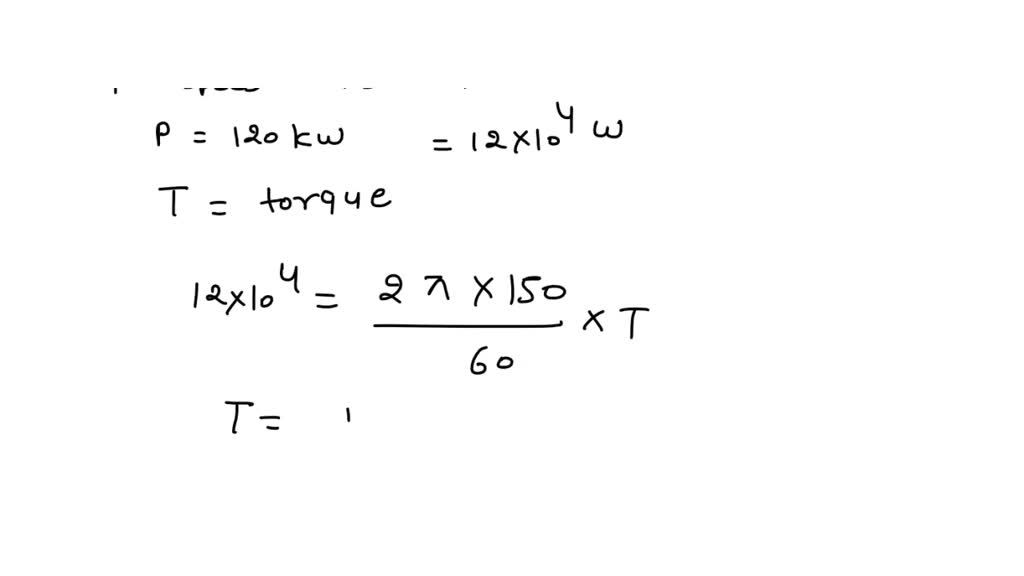 P = 120 kw = 12×10^4 w
T = torque
12×10^4 = 2π×150 / 60 × T
T =